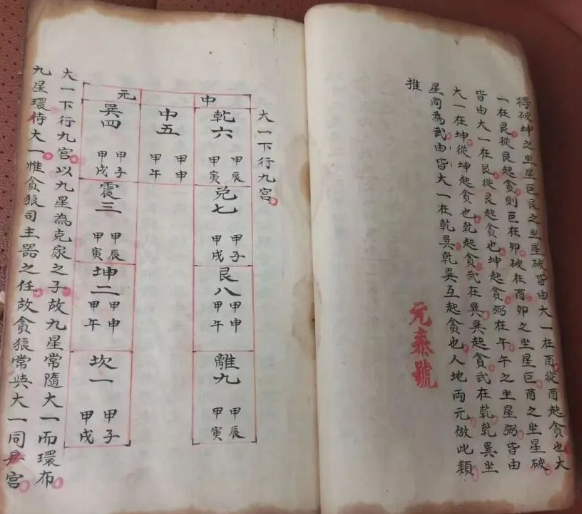 得破坤之坐星巨艮之坐星破皆由大一在酉從酉起貪也大
一在艮從艮起貪則巨在卯破在酉卯之坐星巨酉之坐星破
皆由大一在艮從艮起貪也坤起貪弼在午午之坐星弼皆由
大一在坤從坤起貪也乾起貪武在巽巽起貪武在乾乾巽坐
星同為武由皆大一在乾巽乾巽互起貪也人地兩元倣此類
推
元泰號
大一下行九宮
中元
乾六
甲辰
甲寅
兌七
甲子
甲戌
艮八
甲申
甲午
離九
甲辰
甲寅
中五
甲申
甲午
巽四
甲子
甲戌
震三
甲辰
甲寅
坤二
甲申
甲午
坎一
甲子
甲戌
大一下行九宮以九星為克家之子故九星常隨大一而環布
九星環待大一惟貪狼司主器之任故貪狼常與大一同宮